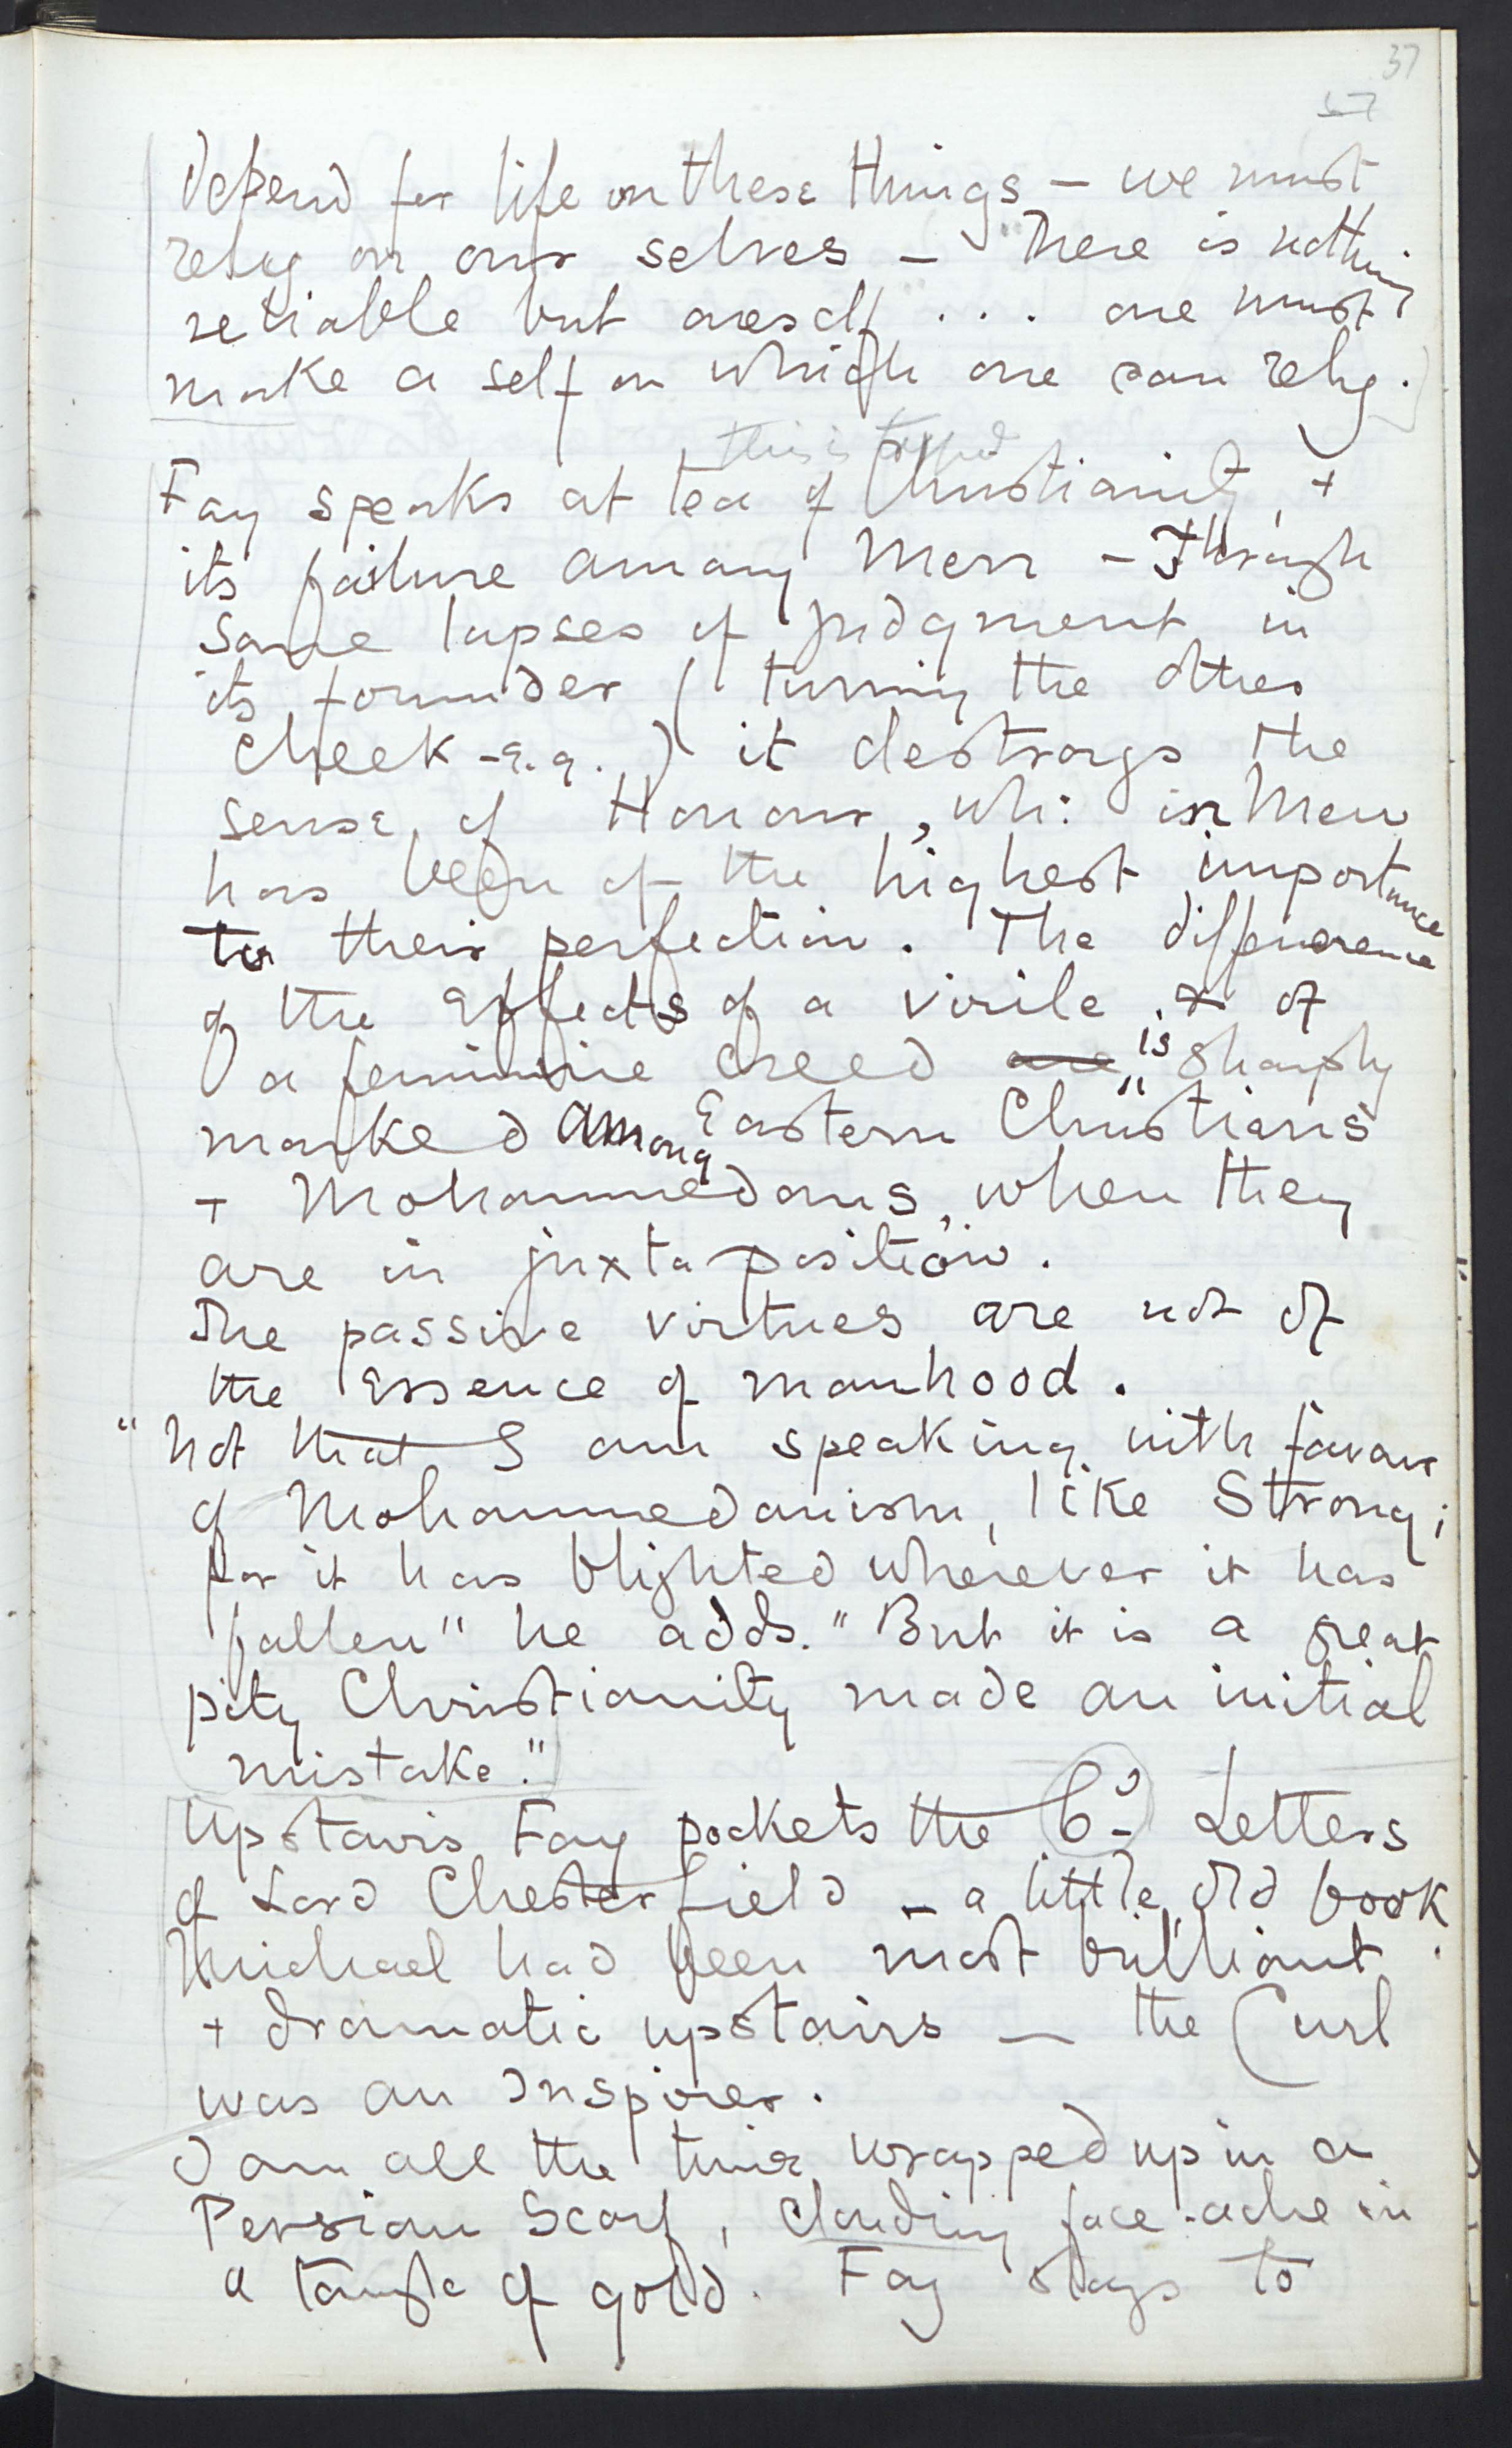 37
57
depend for life on these things – we must
rely on our selves – There is nothing
reliable but oneself . . . one must
make a self on which one can rely.
this is typed
Fay speaks at tea of Christianity, +
its failure among Men – Through
some lapses of judgment in
its founder ( turning the other
cheek – e.g. ) it destroys the
sense of Honour, wh: in Men
has been of the highest importance
to their perfection. The difference
of the effects of a virile & of
a feminine creed are is sharply
marked among Eastern Christians
+ Mohammedans, when they
are in juxta position.
The passive virtues are not of
the Essence of manhood.
"Not that I am speaking with favour
of Mohammedanism, like Strong;
for it has blighted wherever it has
fallen" he adds. "But it is a great
pity Christianity made an initial
mistake."
Upstairs Fay pockets the Letters
of Lord Chesterfield – a little old book.
Michael had been most brilliant
+ dramatic upstairs — the Curl
was an Inspirer.
I am all the time wrapped up in a
Persian Scarf, clouding face-ache in
a tangle of gold. Fay stays to